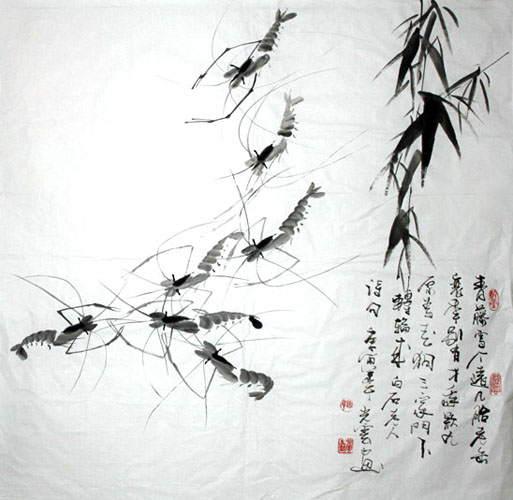 青藤雪个遠凡胎老缶
衰年別有才我欲九
原為走狗三家門下
轉輪來白石老人
詩句 庚寅 光雲畫